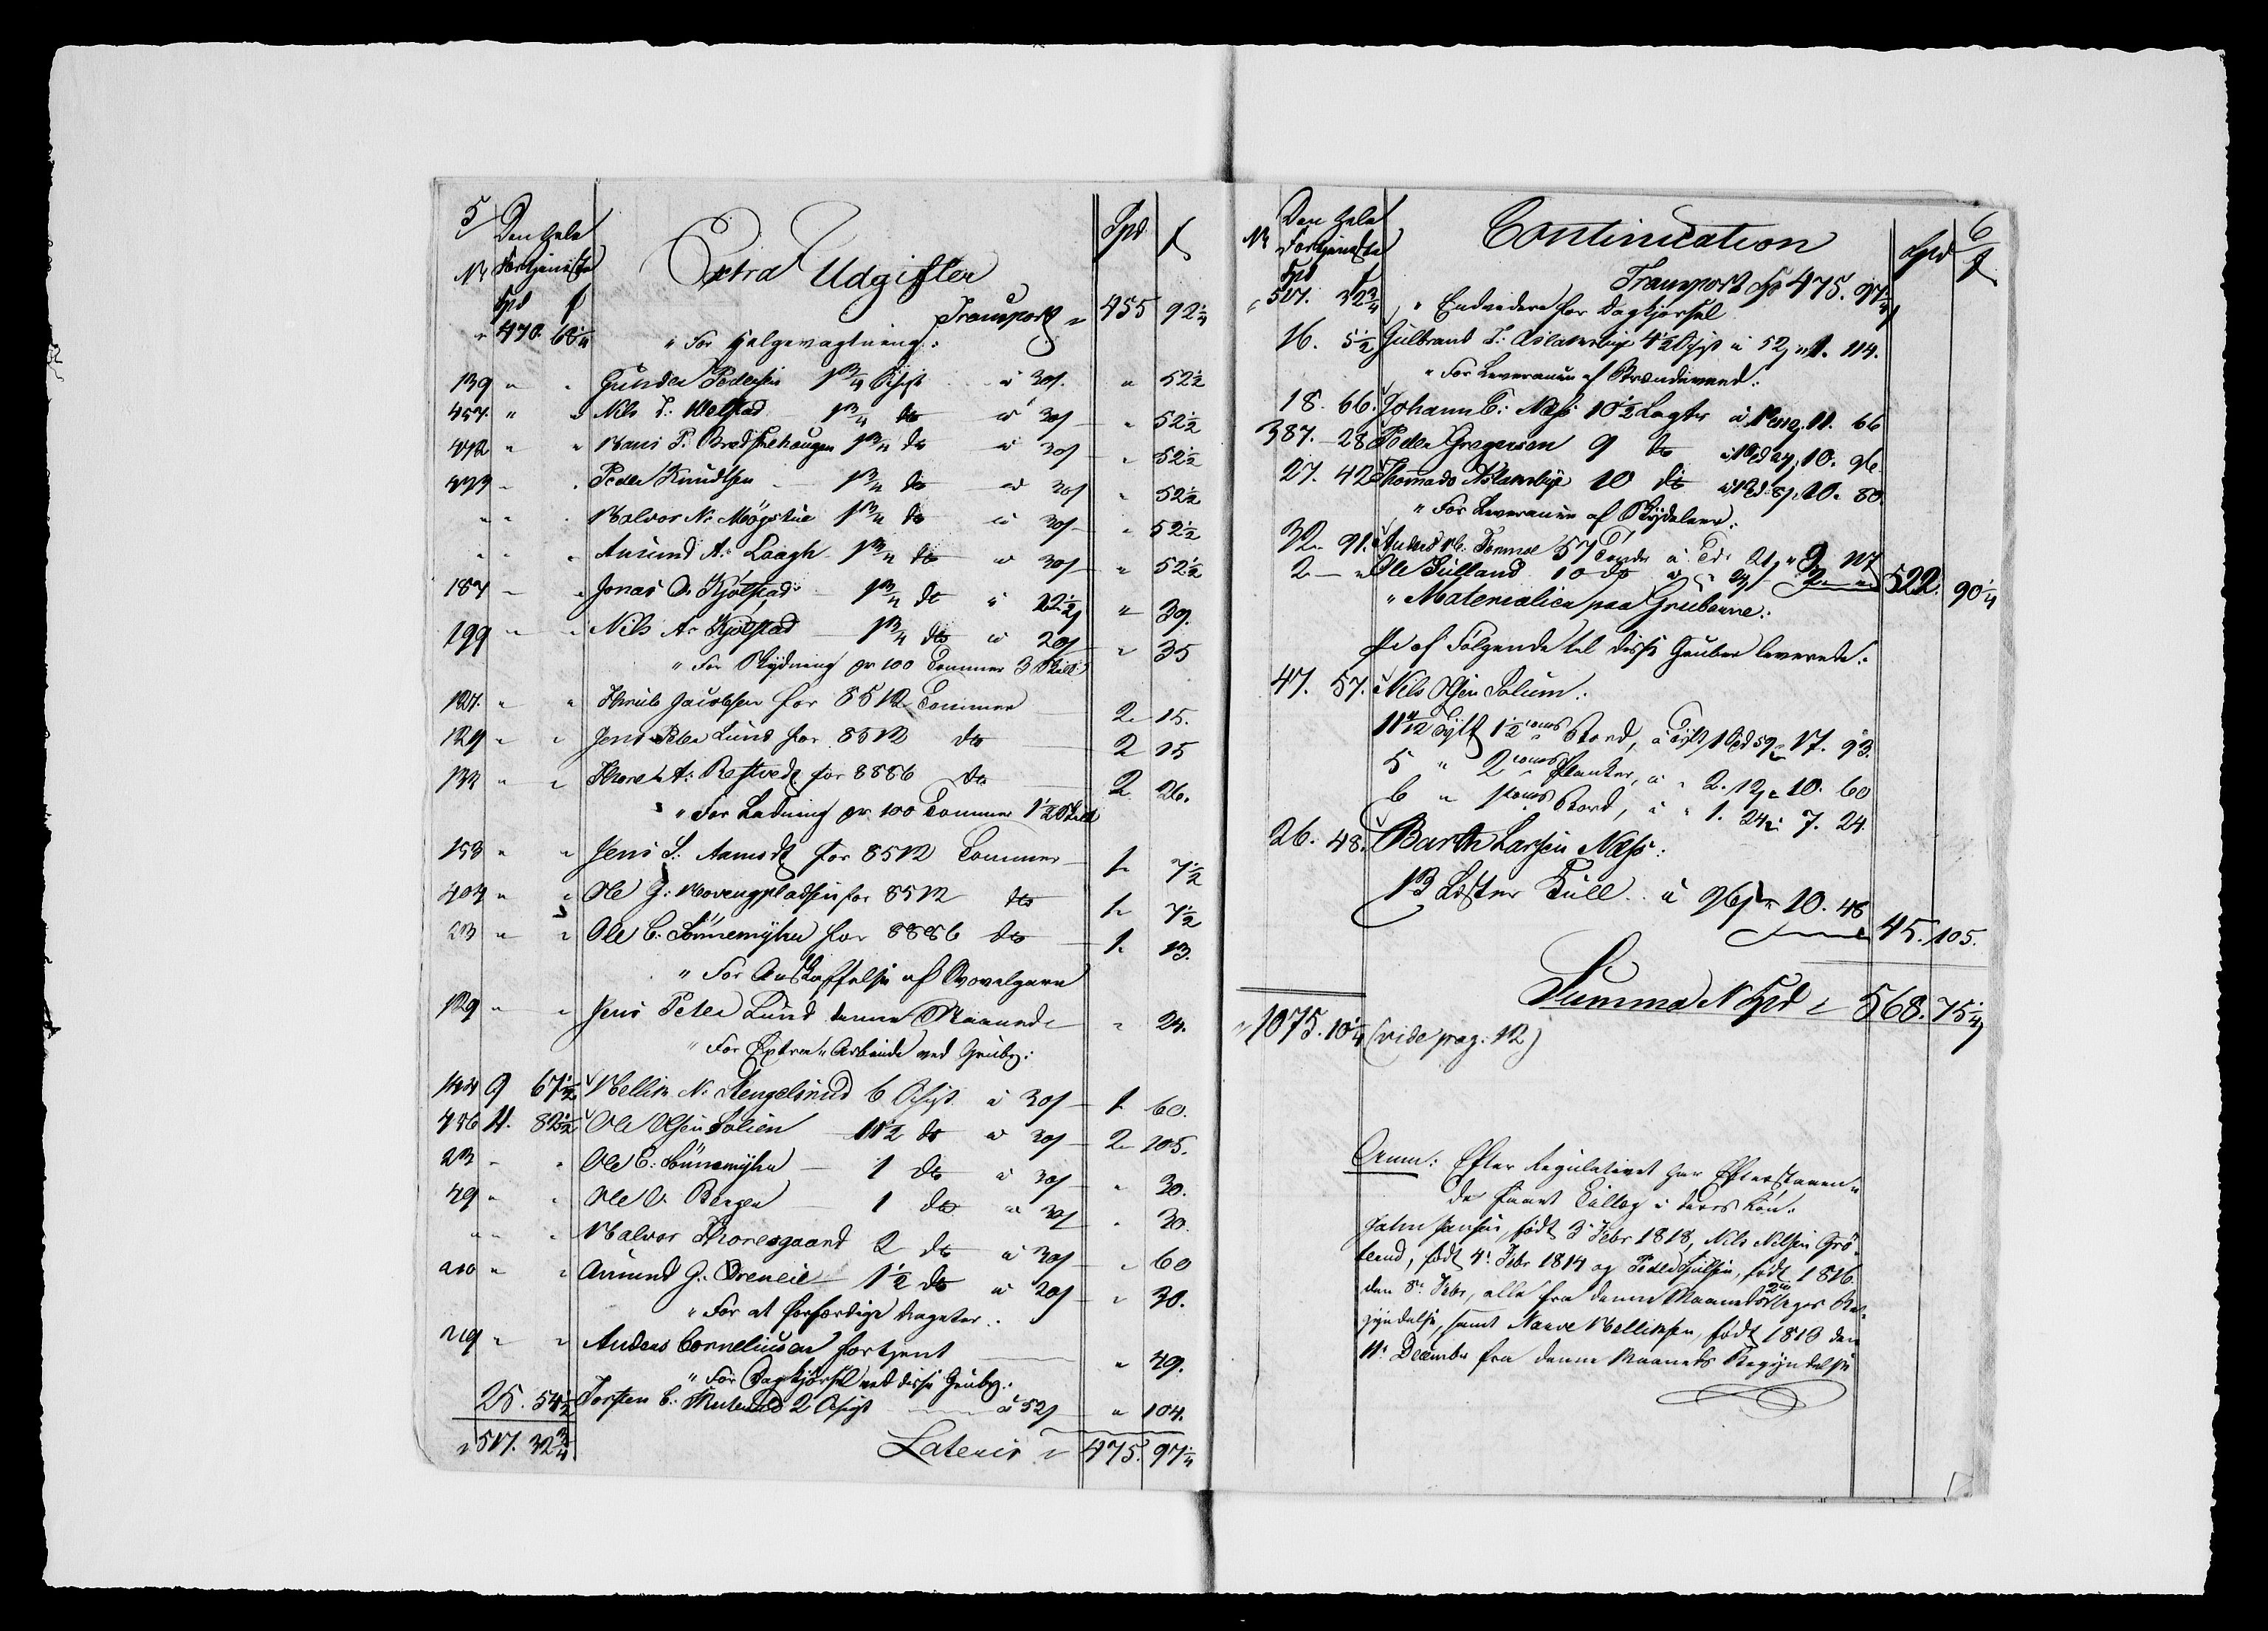 5
Den hele
Nr Fortjeneste
Spd ſ
Extra Udgifter
Spd ſ
" 470. 60 1/4 Transport " 455 92 1/4
" For Helgevagtning:
139 " " Gunder Pedersen 1 3/4 Skift à 30ſ " 52 1/2
457. " " Nils L: 1 3/4 do à 30ſ " 52 1/2
472 " " Hans P. Bredsnehaugen 1 3/4 do à 30ſ " 52 1/2
473 " " Peder Knudsen 1 3/4 do à 30ſ " 52 1/2
" " " Halvor N: Mögstue 1 3/4 do à 30ſ " 52 1/2
" " " Amund A: Laagh 1 3/4 do à 30ſ " 52 1/2
187 " " Jonas O. Kjölstad 1 3/4 do à 22 1/2ſ " 39.
199 " " Nils A: Kjölstad 1 3/4 do à 20ſ " 35
" For Skydning pr 100 Tommer 3 Skill
127. " " Jacobsen for 8512 Tommer 2 " 15.
129 " " Jens Peter Lund for 8512 do 2 15
133 " " Thore A: for 8886 do 2 26.
" For Ladning pr 100 Tommer 1 1/2 Skill
153 " " Jens L: Aamodt for 8512 Tommer 1 " 7 1/2
404 " " Ole J: Hovengpladsen for 8512 do 1 " 7 1/2
23 " " Ole C: Sönnemyhra for 8886 do 1 " 13.
" For Anskaffelse af Svovelgarn
129 " " Jens Peter Lund denne Maaned " 24.
" For Extra Arbeide ved Grube:
144 9 67 1/2 Hellik N: Stengelsrud 6 Skift à 30ſ 1 60.
456 11. 82 1/2 Ole Olsen Solien 11 1/2 do à 30ſ 2 " 105.
23 " " Ole C: Sönnemyhra 1 do à 30ſ " 30.
49 " " Ole O: Bergen 1 do à 30ſ " 30.
" " " Halvor Thoresgaard 2 do à 30ſ " 60
210 " " Amund G: Oreneie 1 1/2 do à 20ſ " 30.
" For at forfærdige Vageter:
219 " " Anders Corneliusen fortjent " 49.
" For Dagkjørsel ved disse Grube:
25. 54 1/2 Torsten C: 2 Skift à 52ſ " 104.
" 517. 32 3/4 Lateris " 475. 97 1/4
6
Den hele
Nr Fortjeneste
Spd ſ
Continuation
Spd ſ
" 517. 32 3/4 Transport Sp 475. 97 1/4
" Endvidere for Dagkjørsel
16. 5 1/2 Gulbrand T: Aslaksbye 4 1/2 Skift à 52ſ " 1. 114.
" For Leverance af Brændeveed:
18. 66. Johan C: Næss 10 1/2 Lagter à 11. 66
387. 28 Peder Gregersen 9 do 10. 96.
27. 42 Thomas Aslaksbye 10 do 10. 80.
" For Leverance af Skydeleer:
32. 91. Anders 57 Tønder à Td. 21ſ " 9. 117
2 " Ole Sulland 10 do à " 2. " 522. 90 1/4
" Materialier paa Gruberne:
for af Følgende til disse Gruber leverede:
47. 57. Nils Olsen Solum:
11 11/12 Tylt 1 1/2 toms Bord, à Tylt 1 Spd 59ſ 17. 93.
5 " 2 toms Planker, à " 2. 12ſ " 10. 60
6 " 1 toms Bord, à " 1. 24ſ " 7. 24
26. 48. Barth Larsen Næss:
13 Læster Kull à 96ſ " 10. 48
45. 105.
Summa N Spd " 568. 75 1/4
" 1075. 10 1/4 (vide pag: 12)
Anm: Efter Regulativet har Efterstaaen-
de faaet Tillæg i deres Løn:
John Hansen, født 3 Febr 1818, Nils Nilsen Grö-
terud, født 4: Febr 1814 og Peder Julsen, født 1816
den 8: Febr, alle fra denne Maaneds 2den Uges Be-
gyndelse, samt Narve Helliksen, født 1813 den
11: December fra denne Maaneds Begyndelse